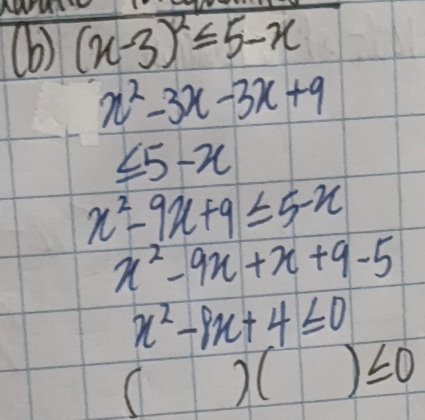 (b) (x-3)² ≤ 5-x
x² - 3x - 3x + 9
≤ 5 - x
x² - 9x + 9 ≤ 5-x
x² - 9x + x + 9 - 5
x² - 8x + 4 ≤ 0
( )( ) ≤ 0